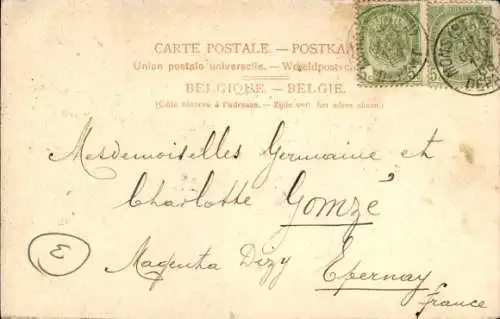 CARTE POSTALE. — POSTKA
Union postale universelle. — Wereldpostve
BELGIQUE. — BELGIE.
(Côté réservé à l'adresse. — Zijde voor het adres alleen.)
Mesdemoiselles Germaine et
Charlotte Gomzé
Magenta Dizy Épernay
France
E
5
5